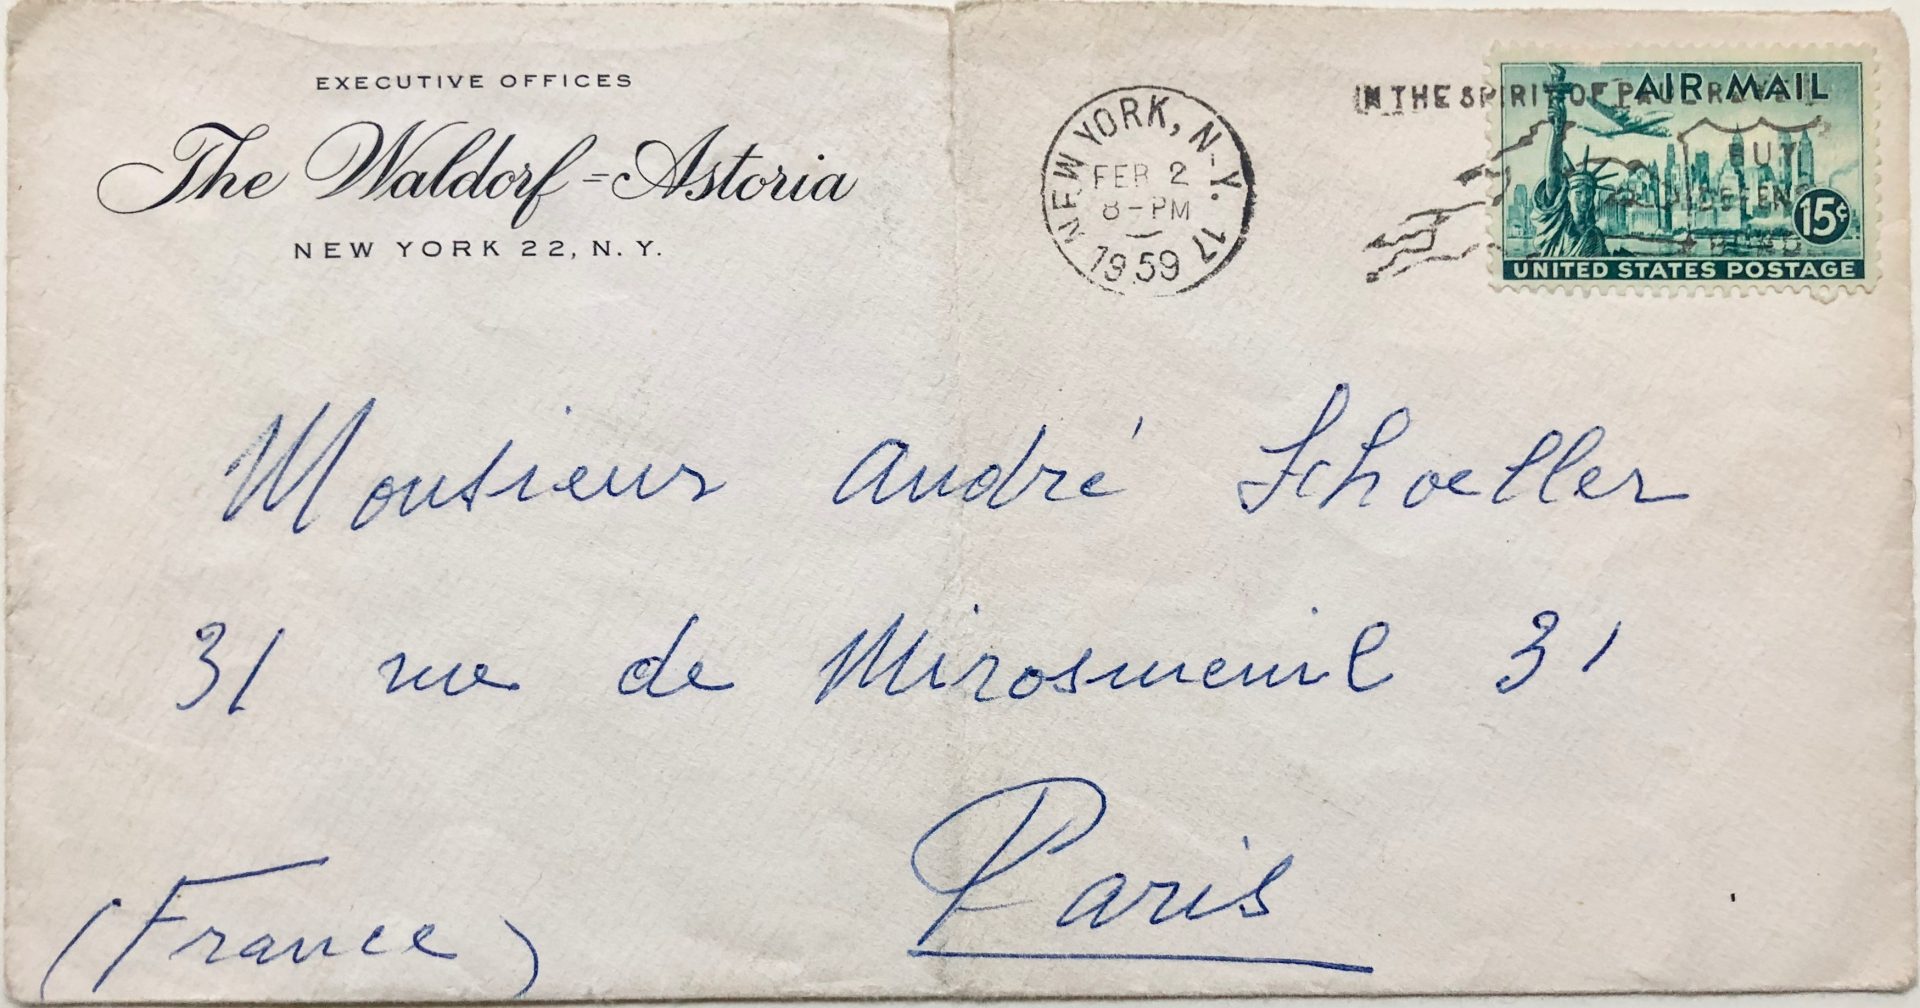 EXECUTIVE OFFICES
The Waldorf=Astoria
NEW YORK 22, N. Y.
NEW YORK, N.Y. 17
FEB 2
8-PM
1959
IN THE SPIRIT OF PAUL REVERE
BUY
U.S. DEFENSE
BONDS
AIR MAIL
15¢
UNITED STATES POSTAGE
Monsieur André Schoeller
31 rue de Mirosmenil 31
Paris
(France)